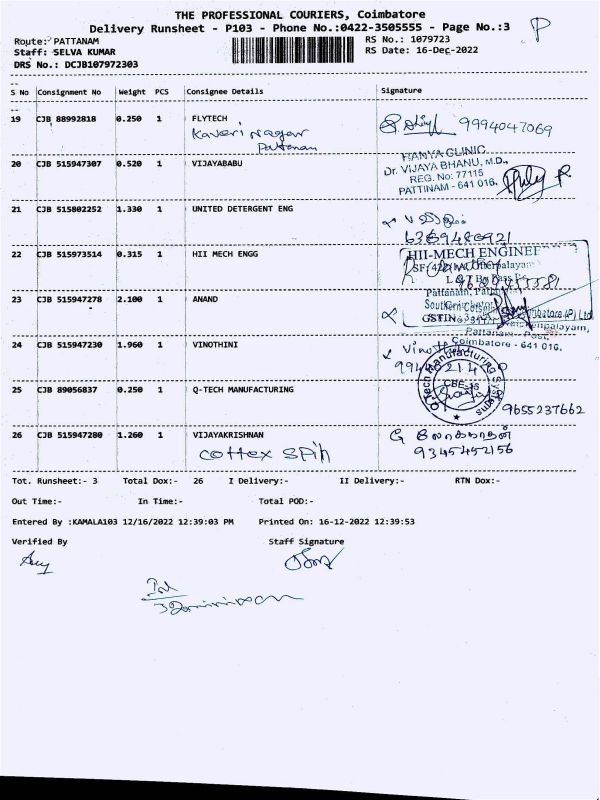 THE PROFESSIONAL COURIERS, Coimbatore
Delivery Runsheet - P103 - Phone No.:0422-3505555 - Page No.:3
P
Route: PATTANAM
RS No.: 1079723
Staff: SELVA KUMAR
RS Date: 16-Dec-2022
DRS No.: DCJB107972303
S No Consignment No Weight PCS Consignee Details Signature
19 CJB 88992818 0.250 1 FLYTECH
Kaveri Nagar
Pattanam
9994047069
20 CJB 515947307 0.520 1 VIJAYABABU
HANYA CLINIC
Dr. VIJAYA BHANU, M.D.,
REG. No: 77115
PATTINAM - 641 016.
21 CJB 515802252 1.330 1 UNITED DETERGENT ENG
6369480921
22 CJB 515973514 0.315 1 HII MECH ENGG
HII-MECH ENGINEE
23 CJB 515947278 2.100 1 ANAND
Pattanam,
GSTIN
24 CJB 515947230 1.960 1 VINOTHINI
Pattanam - Post,
Coimbatore - 641 016.
25 CJB 89056837 0.250 1 Q-TECH MANUFACTURING
Q-Tech Manufacturing Systems
CBE-16
9655237662
26 CJB 515947280 1.260 1 VIJAYAKRISHNAN
cottex spin
9345452156
Tot. Runsheet:- 3 Total Dox:- 26 I Delivery:- II Delivery:- RTN Dox:-
Out Time:- In Time:- Total POD:-
Entered By :KAMALA103 12/16/2022 12:39:03 PM Printed On: 16-12-2022 12:39:53
Verified By Staff Signature